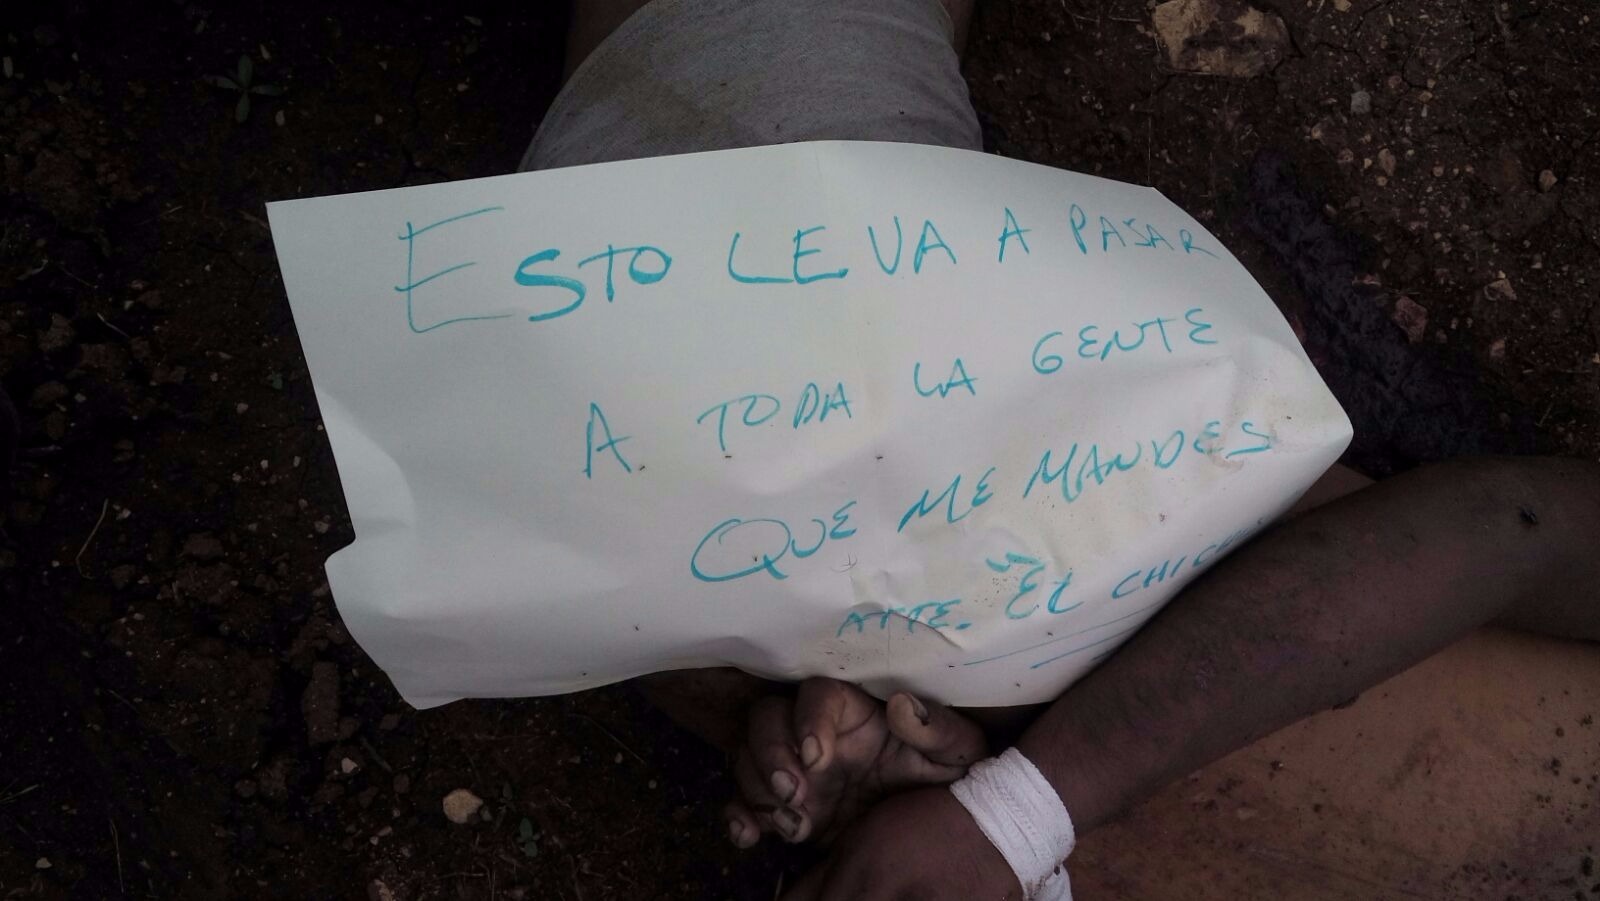 ESTO LE VA A PASAR
A TODA LA GENTE
QUE ME MANDES
ATTE. EL